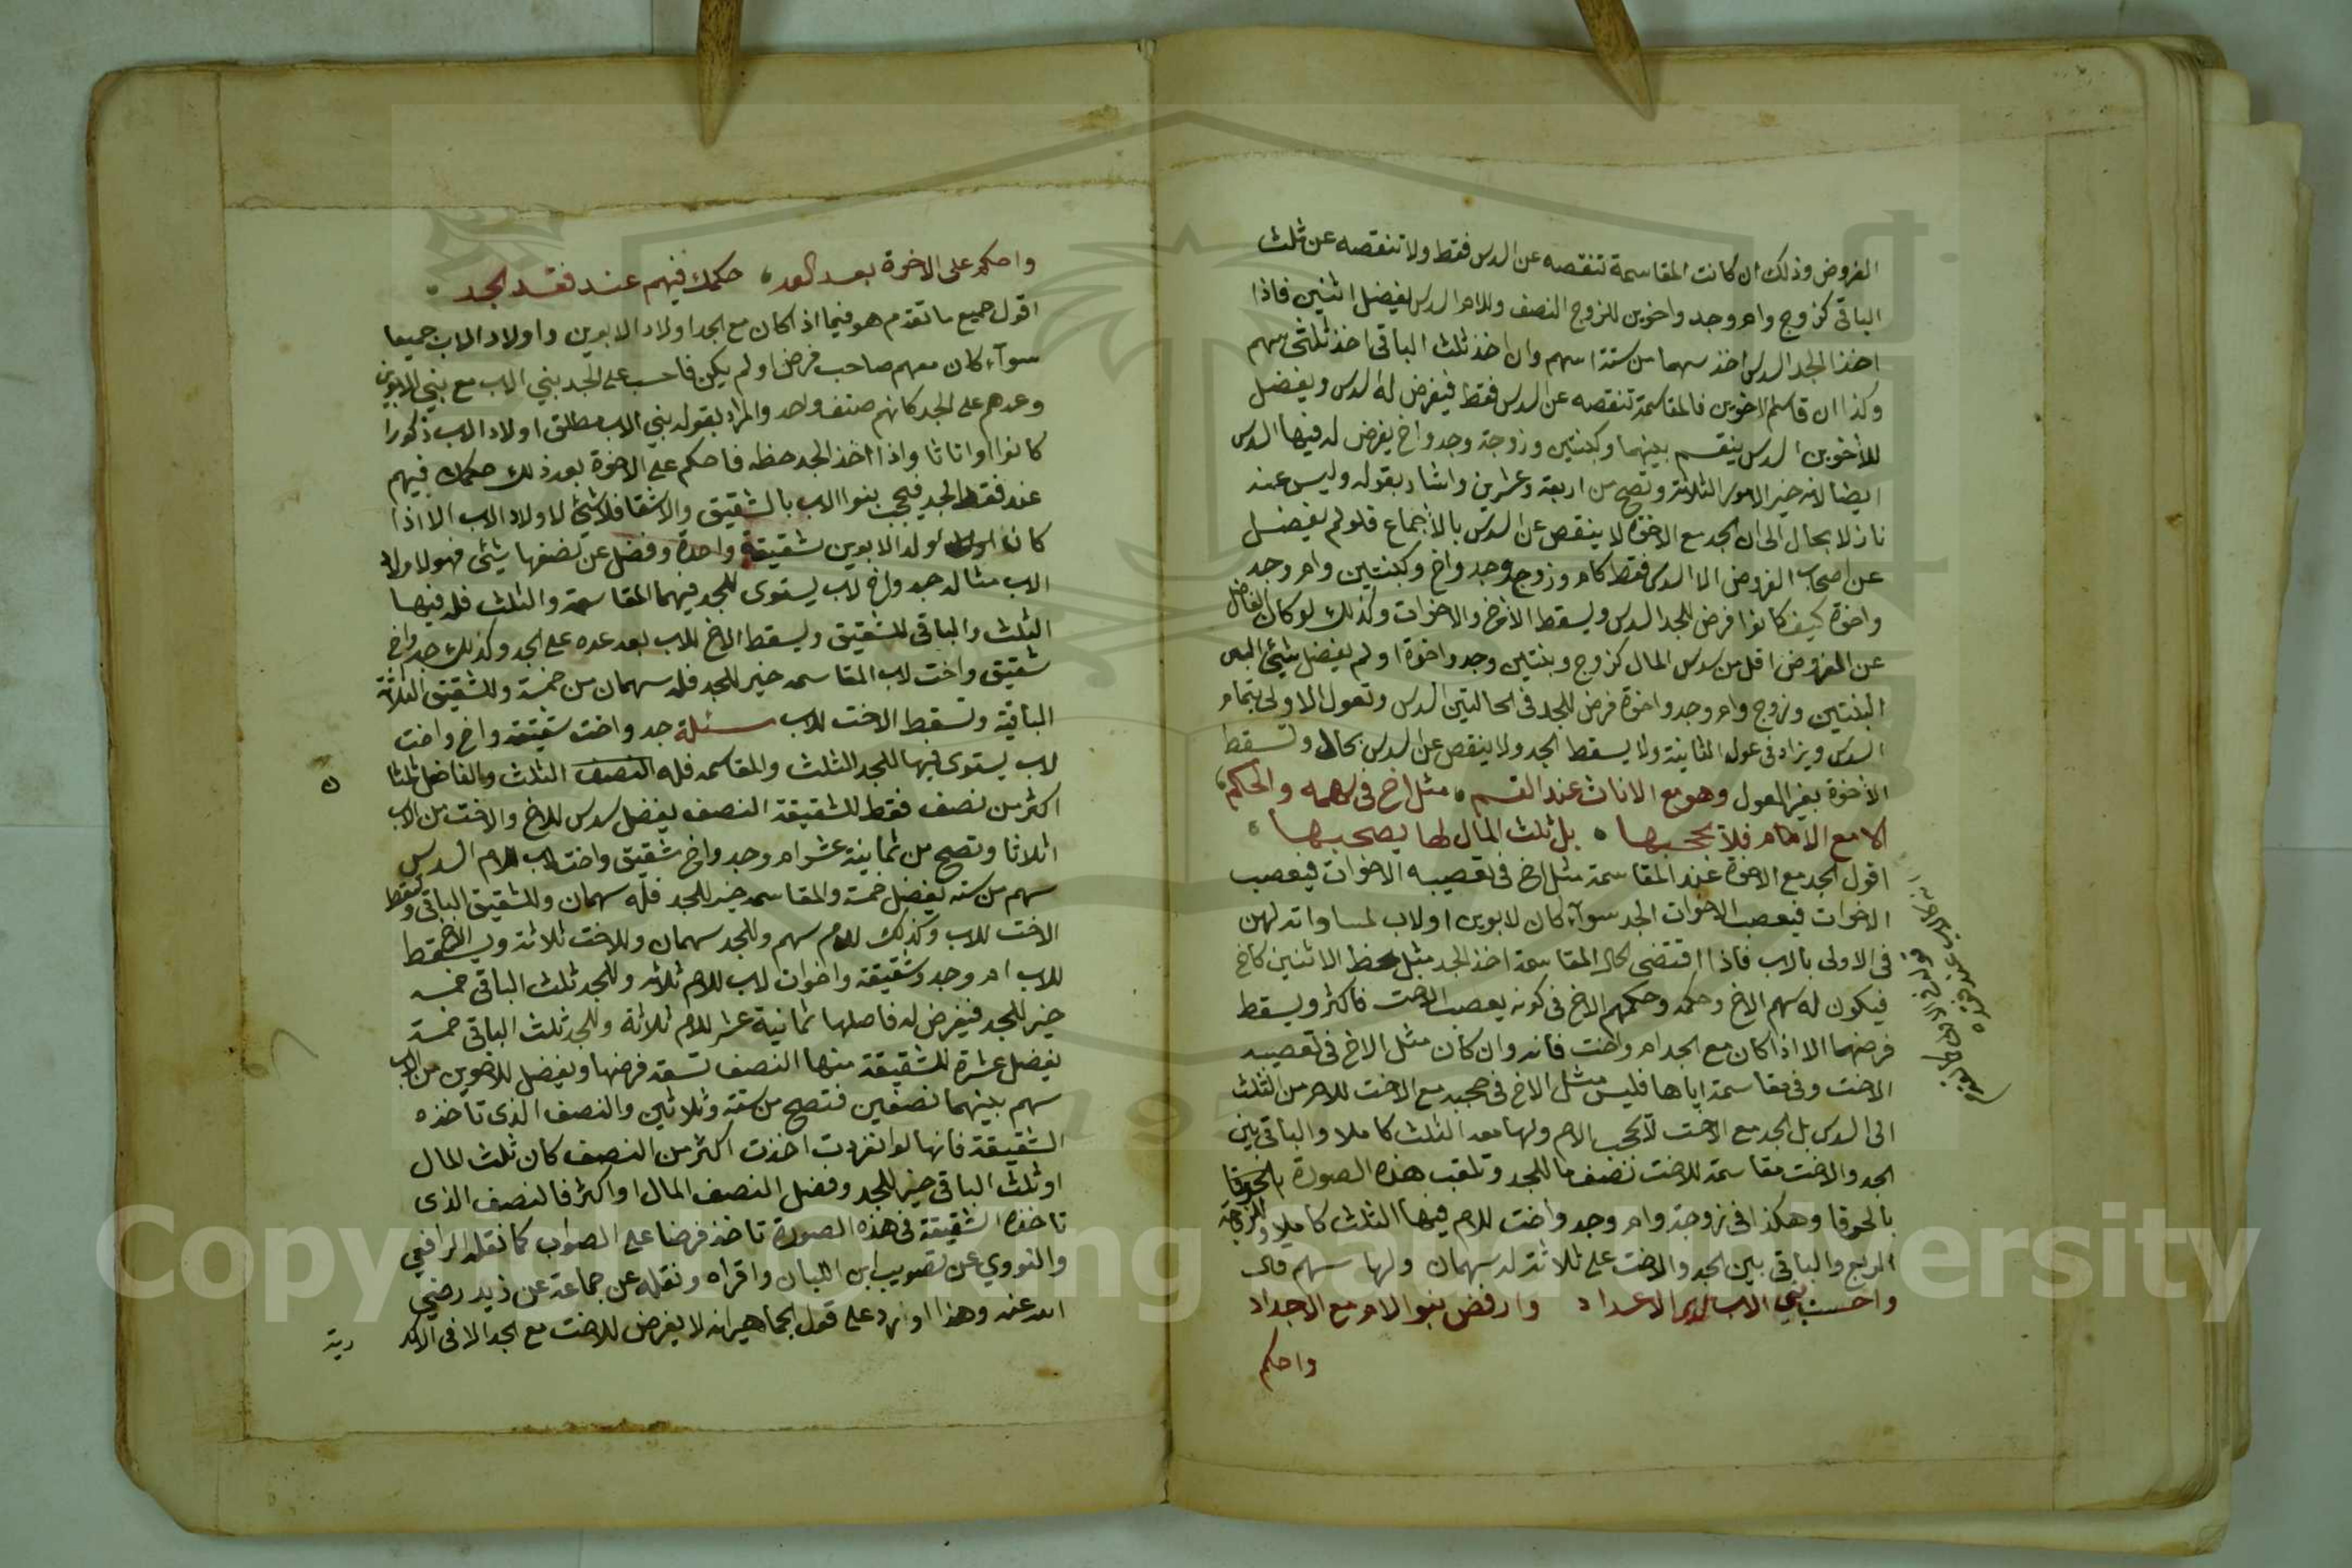 الفروض وذلك ان كانت المقاسمة تنقصه عن السدس فقط ولا تنقصه عن ثلث
الباقى كزوج وام وجد واخوين للزوج النصف وللام السدس يفضل اثنين فاذا
اخذ الجد السدس اخذ سهما من ستة اسهم وان اخذ ثلث الباقى اخذ ثلثى سهم
وكذا ان قاسم الاخوين فالمقاسمة تنقصه عن السدس فقط فيفرض له السدس ويفضل
للأخوين السدس ينقسم بينهما وكبنتين وزوجة وجد واخ يفرض له فيها السدس
ايضا لانه خير الامور الثلاثة وتصح من اربعة وعشرين واشار بقوله وليس عنه
نازلا بحال الى ان الجد مع الاخوة لا ينقص عن السدس بالأجماع فلو لم يفضل
عن اصحاب الفروض الا السدس فقط كام وزوج وجد واخ وكبنتين وام وجد
واخوة كيف كانوا فرض للجد السدس ويسقط الأخ والاخوات وكذلك لو كان الفاضل
عن الفروض اقل من سدس المال كزوج وبنتين وجد واخوة او لم يفضل شيئ
البنتين وزوج وام وجد واخوة فرض للجد فى الحالتين السدس وتعول الاولى بتمام
السدس ويزاد فى عول الثانية ولا يسقط الجد ولا ينقص عن السدس بحال وتسقط
الأخوة بغير العول وهو مع الاناث عند القسم ، مثل اخ فى سهمه والحكم ،
الا مع الام فلا يحجبها ، بل ثلث المال لها يصحبها
اقول الجد مع الاخوة عند المقاسمة مثل اخ فى تعصيبه الاخوات فيعصب
الاخوات فيعصب الاخوات الجد سوآء كان لابوين او لاب لمساواته لهن
فى الاولى بالاب فاذا اقتضى الحال المقاسمة اخذ الجد مثل حظ الانثيين كاخ
فيكون له سهم الاخ وحكمه وحكمهم الاخ فى كونه يعصب الاخت فاكثر ويسقط
فرضهما الا اذا كان مع الجد ام واخت فانه وان كان مثل الاخ فى تعصيبه
الاخت وفى مقاسمة اياها فليس مثل الاخ فى حجبه مع الاخت للام من الثلث
الى السدس بل الجد مع الاخت لا يحجب الام ولها معه الثلث كاملا والباقى بين
الجد والاخت مقاسمة للاخت نصف ما للجد وتلقب هذه الصورة بالخرقا
بالخرقا وهكذا فى زوجة وام وجد واخت للام فيها الثلث كاملا وللزوجة
الربع والباقى بين الجد والاخت على ثلاثة له سهمان ولها سهم قال
واحسب بنى الاب لدى الاعداد وارفض بنو الام مع الاجداد
واحكم
واحكم على الاخوة بعد العد ، حكمك فيهم عند فقد الجد
اقول جميع ما تقدم هو فيما اذا كان مع الجد اولاد الابوين واولاد الاب جميعا
سوآء كان معهم صاحب فرض او لم يكن فاحسب على الجد بني الاب مع بني الابوين
وعدهم على الجد كانهم صنف واحد والمراد بقوله بني الاب مطلق اولاد الاب ذكورا
كانوا او اناثا واذا اخذ الجد حظه فاحكم على الاخوة بعد ذلك حكمك فيهم
عند فقد الجد فيحجب بنوا الاب بالشقيق والاشقا فلا شئ لاولاد الاب الا اذا
كان ولد الابوين شقيقة واحدة وفضل عن نصفها شيئ فهو لاولاد
الاب مثاله جد واخ لاب يستوى للجد فيهما المقاسمة والثلث فله فيها
الثلث والباقى للشقيق ويسقط الاخ للاب بعد عده على الجد وكذلك جد واخ
شقيق واخت لاب المقاسمه خير للجد فله سهمان من خمسة وللشقيق الثلاثة
الباقية وتسقط الاخت للاب مسئلة جد واخت شقيقة واخ واخت
لاب يستوى فيها للجد الثلث والمقاسمه فله النصف الثلث والفاضل ثلثا
اكثر من نصف فقط للشقيقة النصف يفضل سدس للاخ والاخت من الاب
اثلاثا وتصح من ثمانية عشر ام وجد واخ شقيق واخت لاب للام السدس
سهم من سته يفضل خمسة والمقاسمه خير للجد فله سهمان وللشقيق الباقى وتسقط
الاخت للاب وكذلك للام سهم وللجد سهمان وللاخت ثلاثة ويسقط الاخ
للاب ام وجد وشقيقة واخوان لاب للام ثلاثه وللجد ثلث الباقى خمسه
خير للجد فيفرض له فاصلها ثمانية عشر للام ثلاثة وللجد ثلث الباقى خمسة
يفضل عشرة للشقيقة منها النصف تسعة فرضها ويفضل للاخوين من الاب
سهم بينهما نصفين فتصح من ستة وثلاثين والنصف الذى تاخذه
الشقيقة فانها لو انفردت اخذت اكثر من النصف كان ثلث المال
او ثلث الباقى خير للجد وفضل النصف المال او اكثر فالنصف الذى
تاخذه الشقيقة فى هذه الصورة تاخذ فرضا على الصواب كما نقله الرافعي
والنووي عن تصويب ابن اللبان واقراه ونقله عن جماعة عن زيد رضي
الله عنه وهذا اورد على قول الجماهير انه لا يفرض للاخت مع الجد الا فى الاكد
رية
Copyright © King Saud University